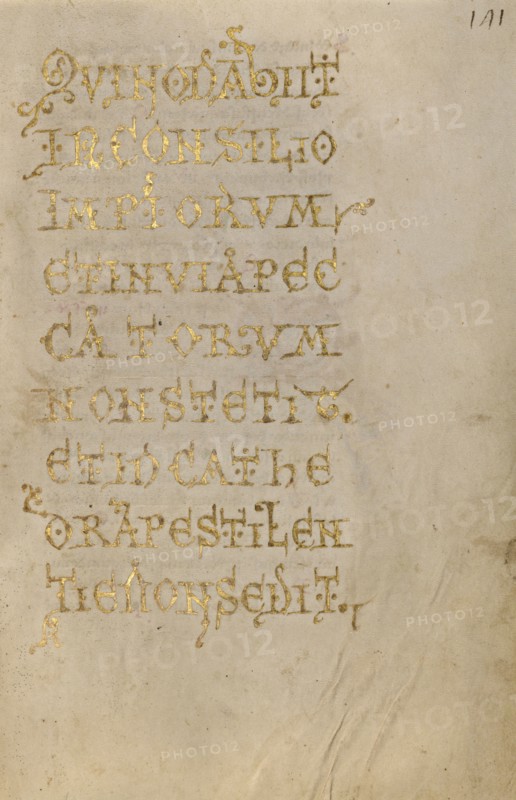 QVINONABIIT
INCONSILIO
IMPIORVM
ETINVIAPEC
CATORVM
NONSTETIT.
ETINCATHE
DRAPESTILEN
TIENONSEDIT.
PHOTO12